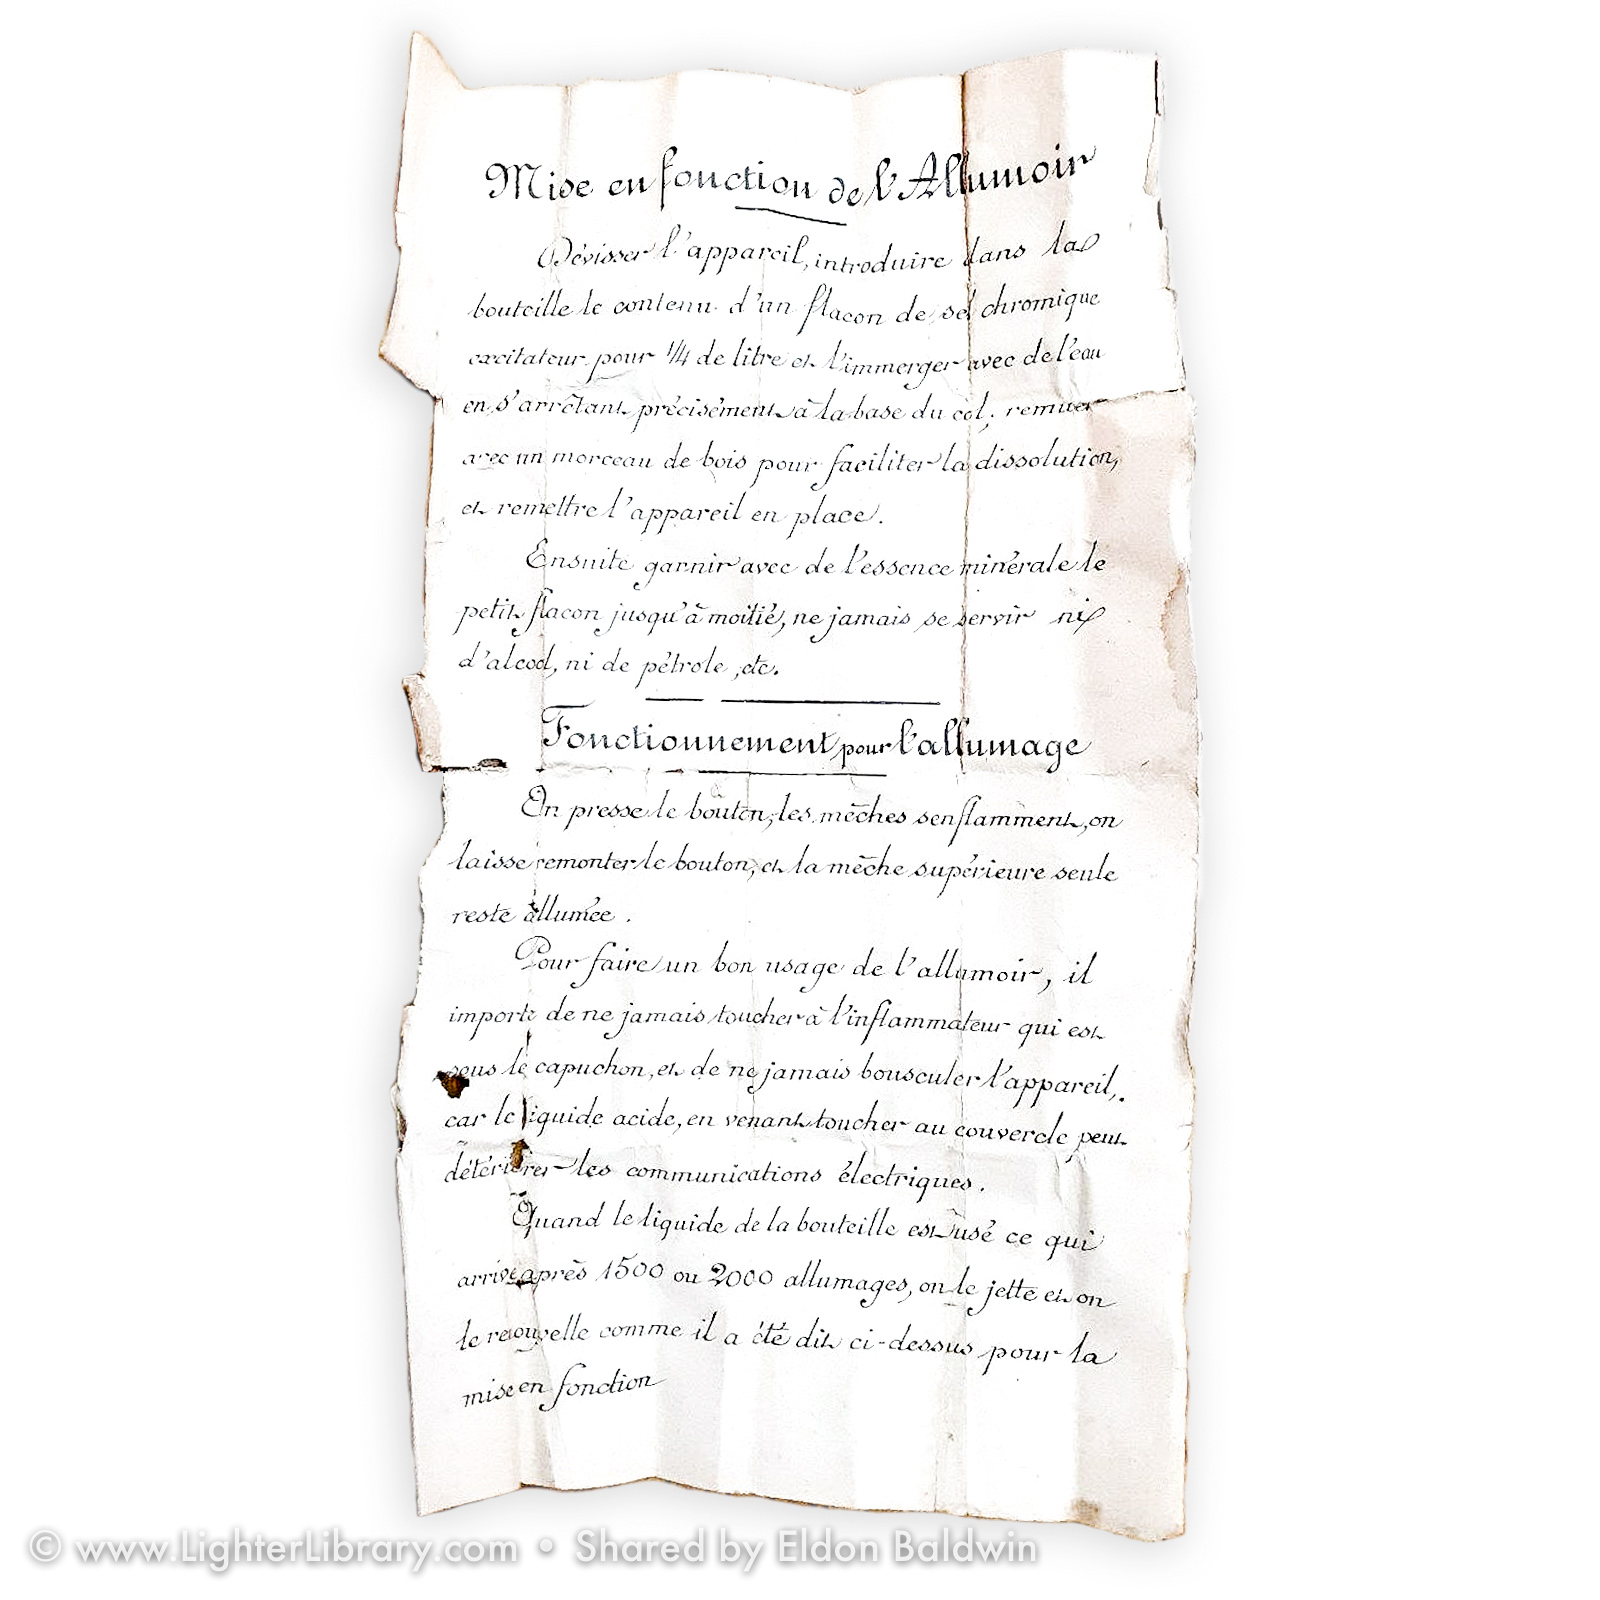 Mise en fonction de l'Allumoir
Dévisser l'appareil, introduire dans la
bouteille le contenu d'un flacon de sel chromique
excitateur pour 1/4 de litre et l'immerger avec de l'eau
en s'arrêtant précisément à la base du col; remuer
avec un morceau de bois pour faciliter la dissolution,
et remettre l'appareil en place.
Ensuite garnir avec de l'essence minérale le
petit flacon jusqu'à moitié, ne jamais se servir ni
d'alcool, ni de pétrole, etc.
Fonctionnement pour l'allumage
On presse le bouton, les mèches senflamment, on
laisse remonter le bouton, et la mèche supérieure seule
reste allumée.
Pour faire un bon usage de l'allumoir, il
importe de ne jamais toucher à l'inflammateur qui est
sous le capuchon, et de ne jamais bousculer l'appareil,
car le liquide acide, en venant toucher au couvercle peut
détériorer les communications électriques.
Quand le liquide de la bouteille est usé ce qui
arrive après 1500 ou 2000 allumages, on le jette et on
le renouvelle comme il a été dit ci-dessus pour la
mise en fonction
© www.LighterLibrary.com • Shared by Eldon Baldwin